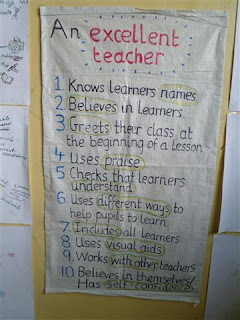 An excellent
teacher
1. Knows learners names
2. Believes in learners
3. Greets their class at
the beginning of a lesson
4. Uses praise
5. Checks that learners
understand
6. Uses different ways to
help pupils to learn
7. Includes all learners
8. Uses visual aids
9. Works with other teachers
10 Believes in themselves/
Has self-confidence